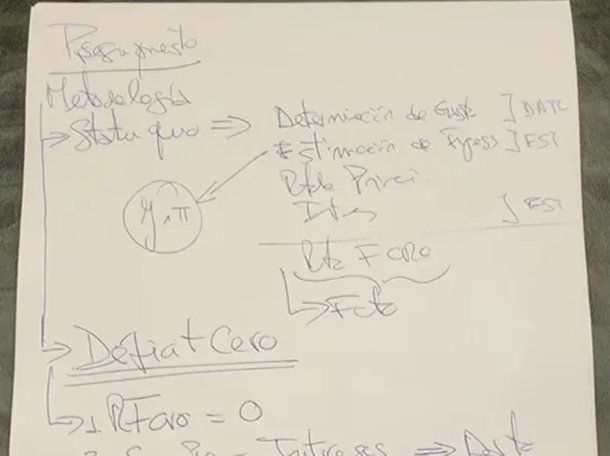 Presupuesto
Metodología
→ Statu quo ⇒ Determinación de Gasto ] DATO
Estimación de Ingresos ] EST
Rtdo Prim.
Int ] EST
y, π
Rtdo
→ Fcto
→ Déficit Cero
→ 1. = 0
2. = Intereses ⇒